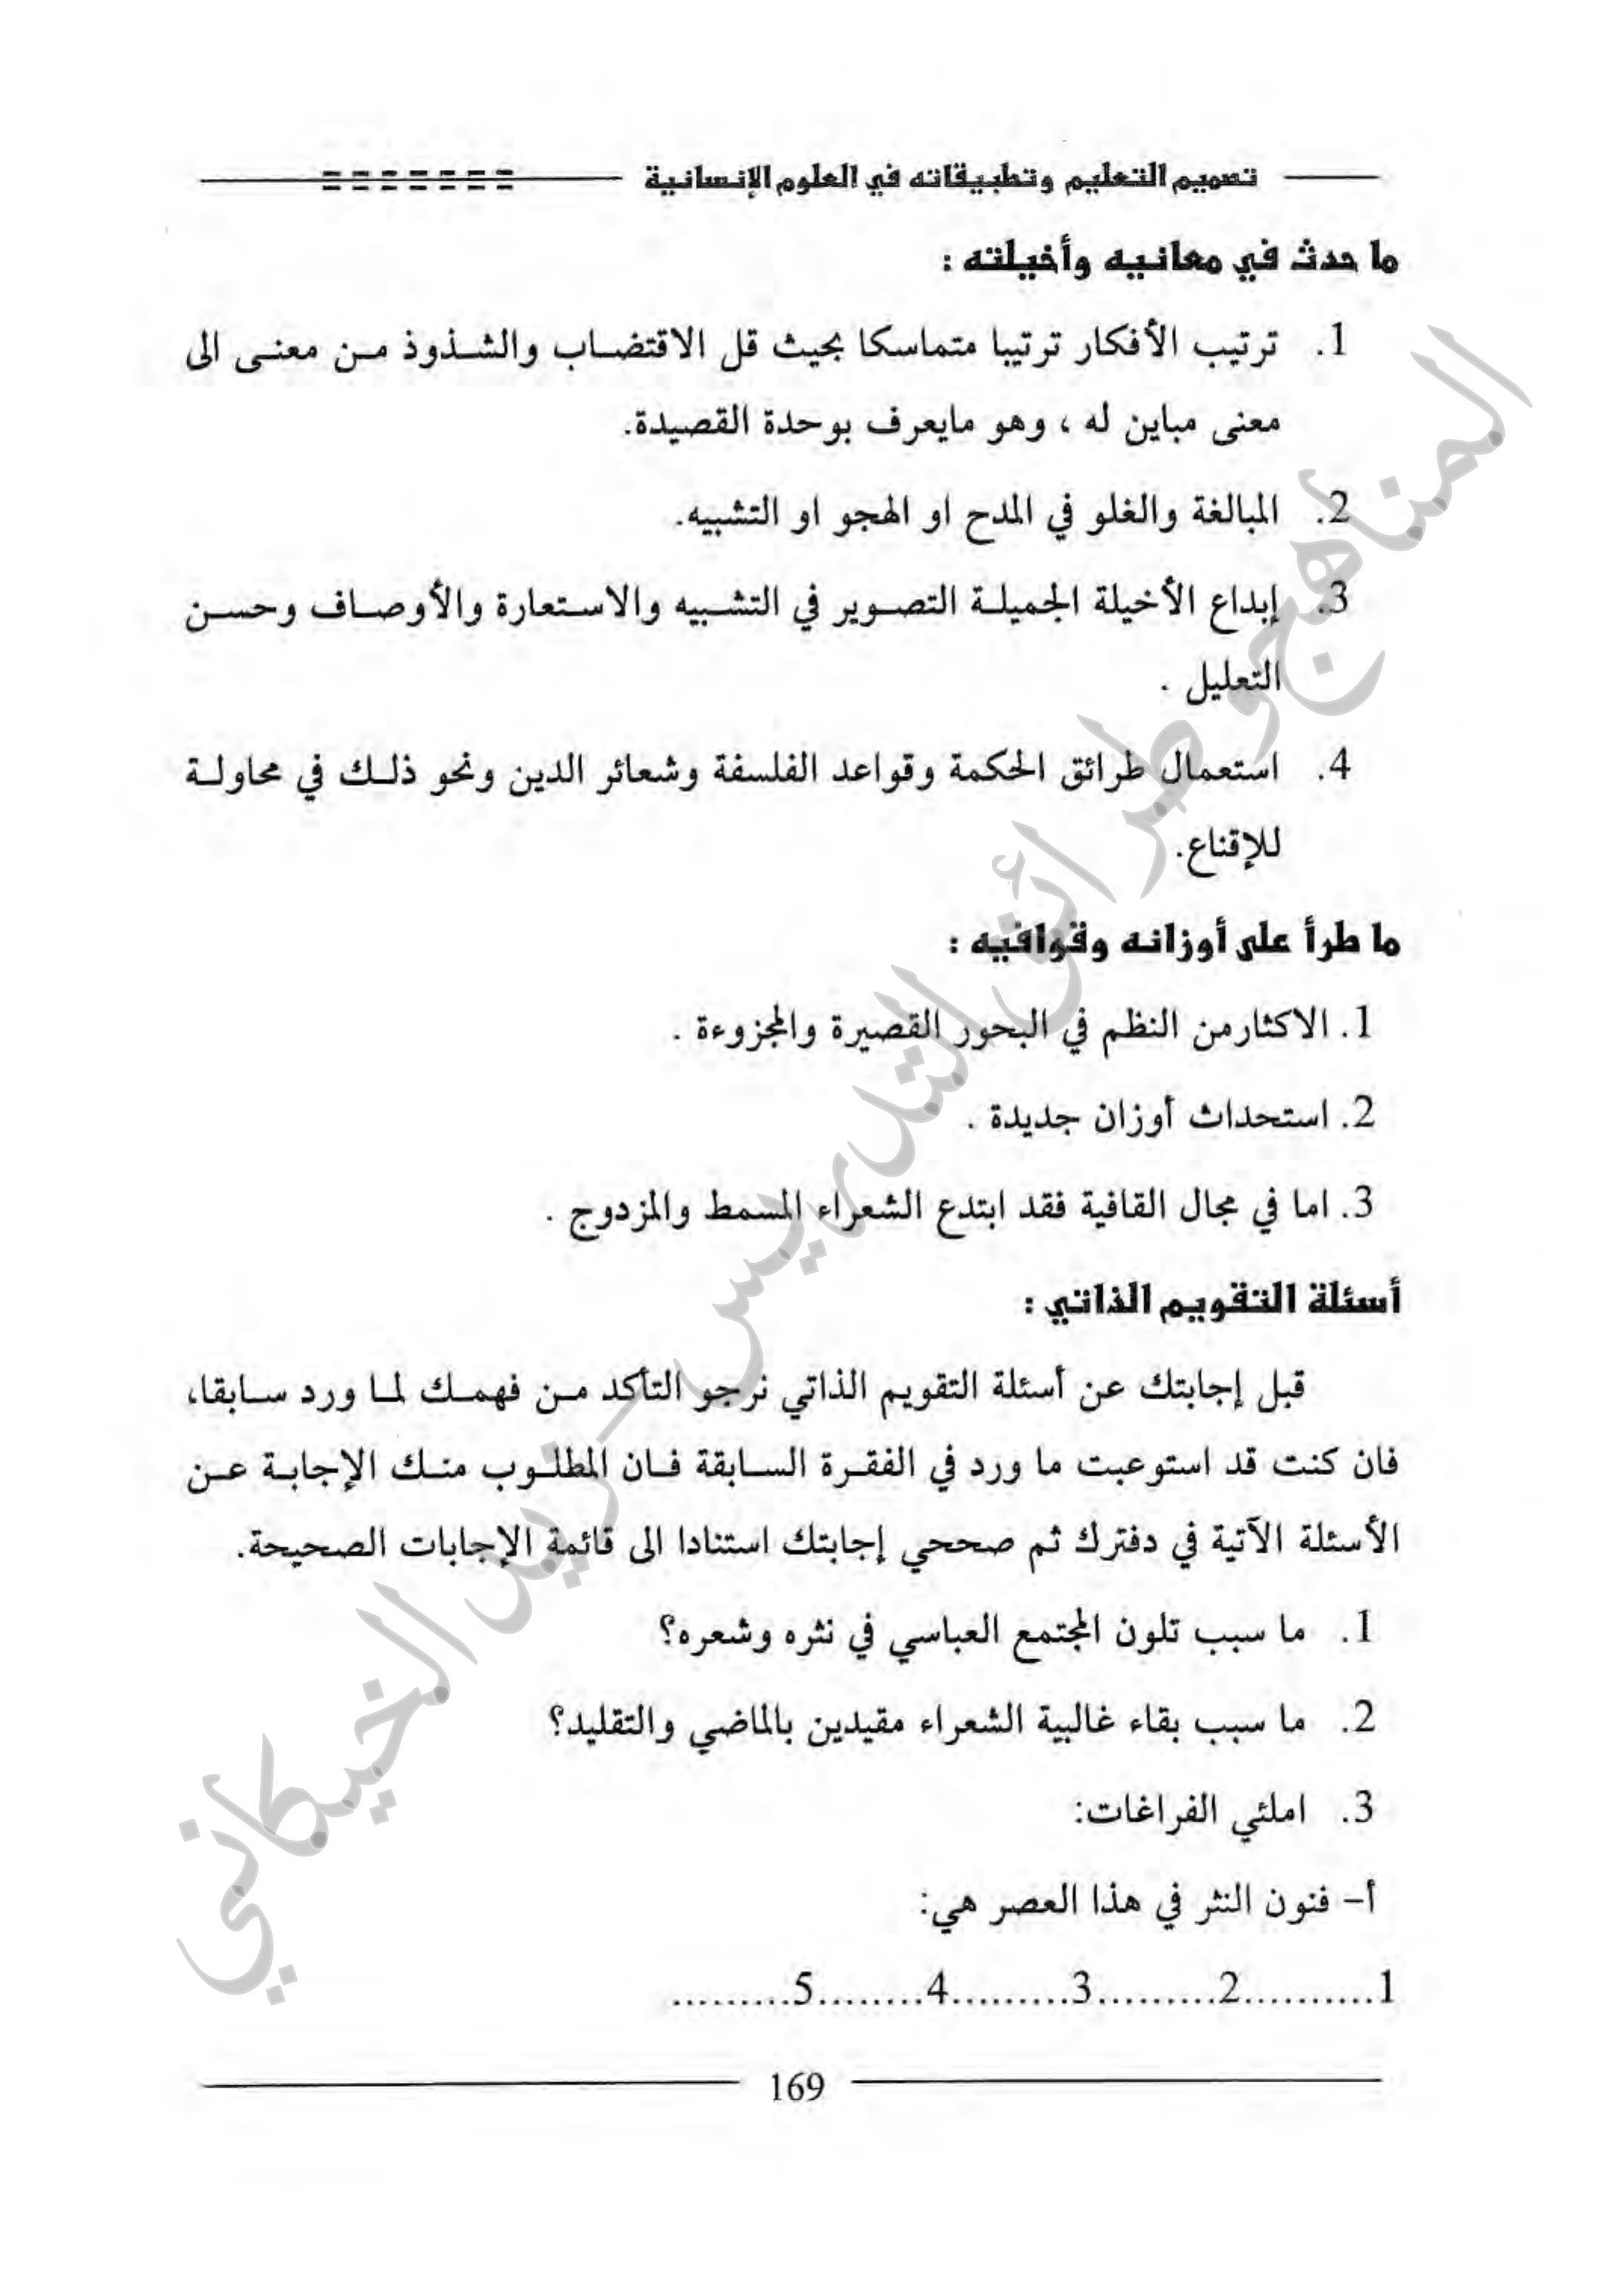 تصميم التعليم وتطبيقاته في العلوم الإنسانية
ما حدث في معانيه وأخيلته :
1. ترتيب الأفكار ترتيبا متماسكا بحيث قل الاقتضاب والشذوذ من معنى الى
معنى مباين له ، وهو مايعرف بوحدة القصيدة.
2. المبالغة والغلو في المدح او الهجو او التشبيه.
3. إبداع الأخيلة الجميلة التصوير في التشبيه والاستعارة والأوصاف وحسن
التعليل .
4. استعمال طرائق الحكمة وقواعد الفلسفة وشعائر الدين ونحو ذلك في محاولة
للإقناع.
ما طرأ على أوزانه وقوافيه :
1. الاكثارمن النظم في البحور القصيرة والمجزوءة .
2. استحداث أوزان جديدة .
3. اما في مجال القافية فقد ابتدع الشعراء المسمط والمزدوج .
أسئلة التقويم الذاتي :
قبل إجابتك عن أسئلة التقويم الذاتي نرجو التأكد من فهمك لما ورد سابقا،
فان كنت قد استوعبت ما ورد في الفقرة السابقة فان المطلوب منك الإجابة عن
الأسئلة الآتية في دفترك ثم صححي إجابتك استنادا الى قائمة الإجابات الصحيحة.
1. ما سبب تلون المجتمع العباسي في نثره وشعره؟
2. ما سبب بقاء غالبية الشعراء مقيدين بالماضي والتقليد؟
3. املئي الفراغات:
أ- فنون النثر في هذا العصر هي:
1..........2.........3.........4........5.........
169
المناهج وطرائق التدريس - زيد الخيكاني